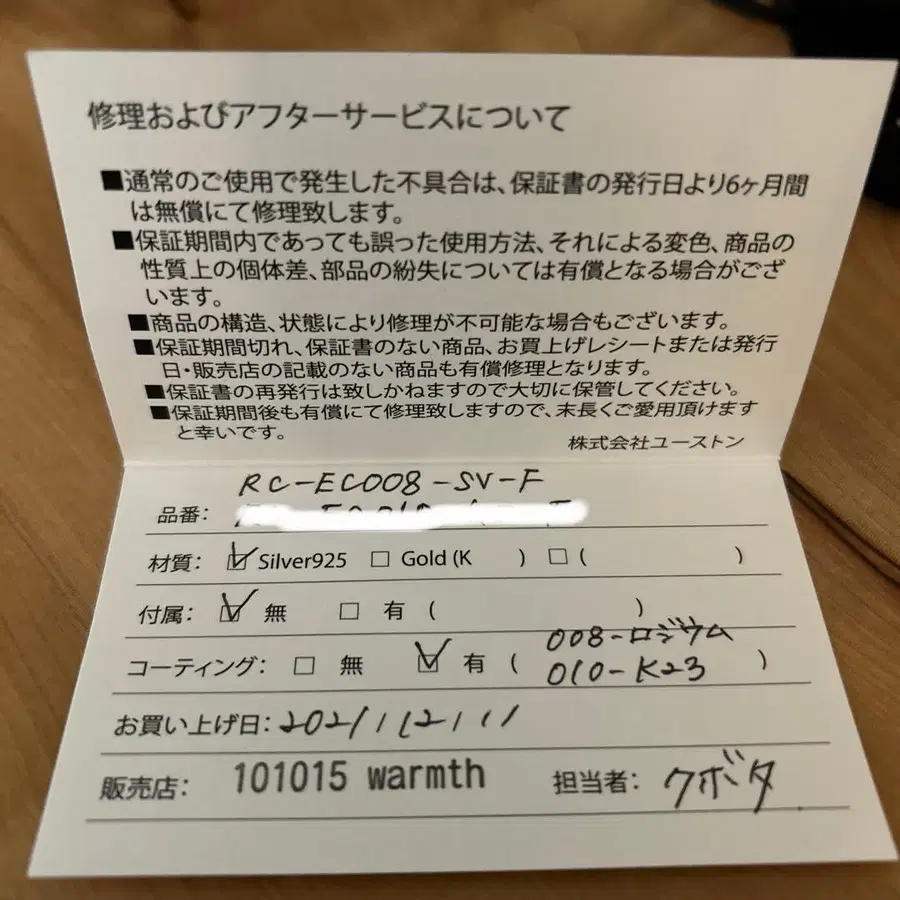 修理およびアフターサービスについて
■通常のご使用で発生した不具合は、保証書の発行日より6ヶ月間
は無償にて修理致します。
■保証期間内であっても誤った使用方法、それによる変色、商品の
性質上の個体差、部品の紛失については有償となる場合がござ
います。
■商品の構造、状態により修理が不可能な場合もございます。
■保証期間切れ、保証書のない商品、お買上げレシートまたは発行
日・販売店の記載のない商品も有償修理となります。
■保証書の再発行は致しかねますので大切に保管してください。
■保証期間後も有償にて修理致しますので、末長くご愛用頂けます
と幸いです。
株式会社ユーストン
RC-EC008-SV-F
品番:
材質: ☑ Silver925 □ Gold (K ) □ ( )
付属: ☑ 無 □ 有 ( )
コーティング: □ 無 ☑ 有 ( 008-ロジウム
010-K23 )
お買い上げ日: 2021/12/11
販売店: 101015 warmth 担当者: クボタ